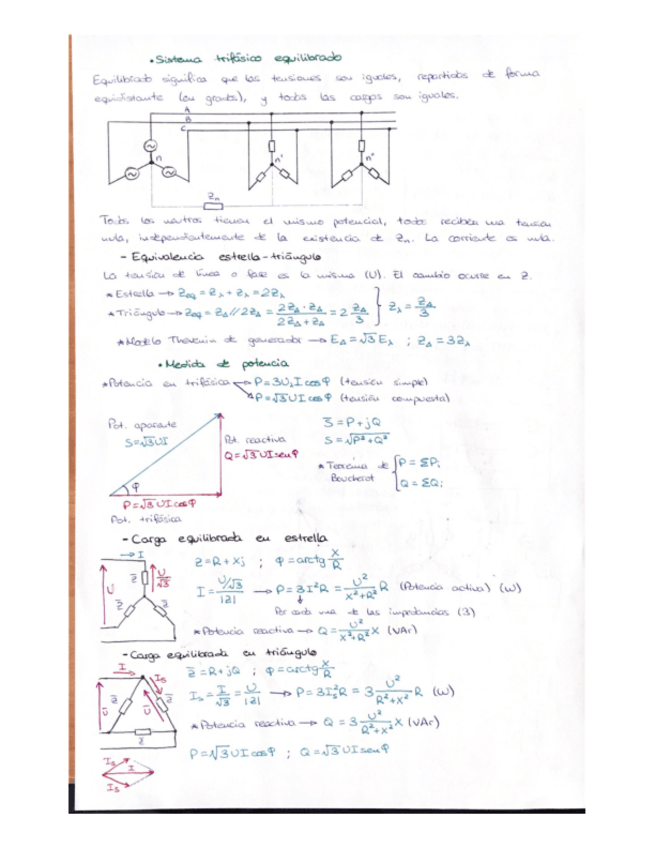 • Sistema trifásico equilibrado
Equilibrado significa que las tensiones son iguales, repartidas de forma
equidistante (en grados), y todas las cargas son iguales.
A
B
C
n n' n''
Zn
Todos los neutros tienen el mismo potencial, todos reciben una tensión
nula, independientemente de la existencia de Zn. La corriente es nula.
- Equivalencia estrella-triángulo
La tensión de línea o fase es la misma (U). El cambio ocurre en Z.
* Estrella → Zeq = Z⅄ + Z⅄ = 2Z⅄
* Triángulo → Zeq = ZΔ // 2ZΔ = 2ZΔ·ZΔ / 2ZΔ+ZΔ = 2 ZΔ/3 } Z⅄ = ZΔ/3
* Modelo Thevenin de generador → EΔ = √3 E⅄ ; ZΔ = 3Z⅄
• Medida de potencia
* Potencia en trifásica → P = 3U⅄ I cos φ (tensión simple)
→ P = √3 UI cos φ (tensión compuesta)
Pot. aparente
S = √3 UI
Pot. reactiva
Q = √3 UI sen φ
φ
P = √3 UI cos φ
Pot. trifásica
S = P + jQ
S = √P²+Q²
* Teorema de Boucherot { P = ΣPi
Q = ΣQi
- Carga equilibrada en estrella
I
U
U/√3
Z Z Z
Z = R + Xj ; φ = arctg X/R
I = U/√3 / |Z| → P = 3I²R = U²/X²+R² R (Potencia activa) (W)
Por cada una de las impedancias (3)
* Potencia reactiva → Q = U²/X²+R² X (VAr)
- Carga equilibrada en triángulo
I Is
U U
Z Z Z
Z = R + jQ ; φ = arctg X/R
Is = I/√3 = U/|Z| → P = 3Is²R = 3 U²/R²+X² R (W)
* Potencia reactiva → Q = 3 U²/R²+X² X (VAr)
P = √3 UI cos φ ; Q = √3 UI sen φ
Is
I
Is